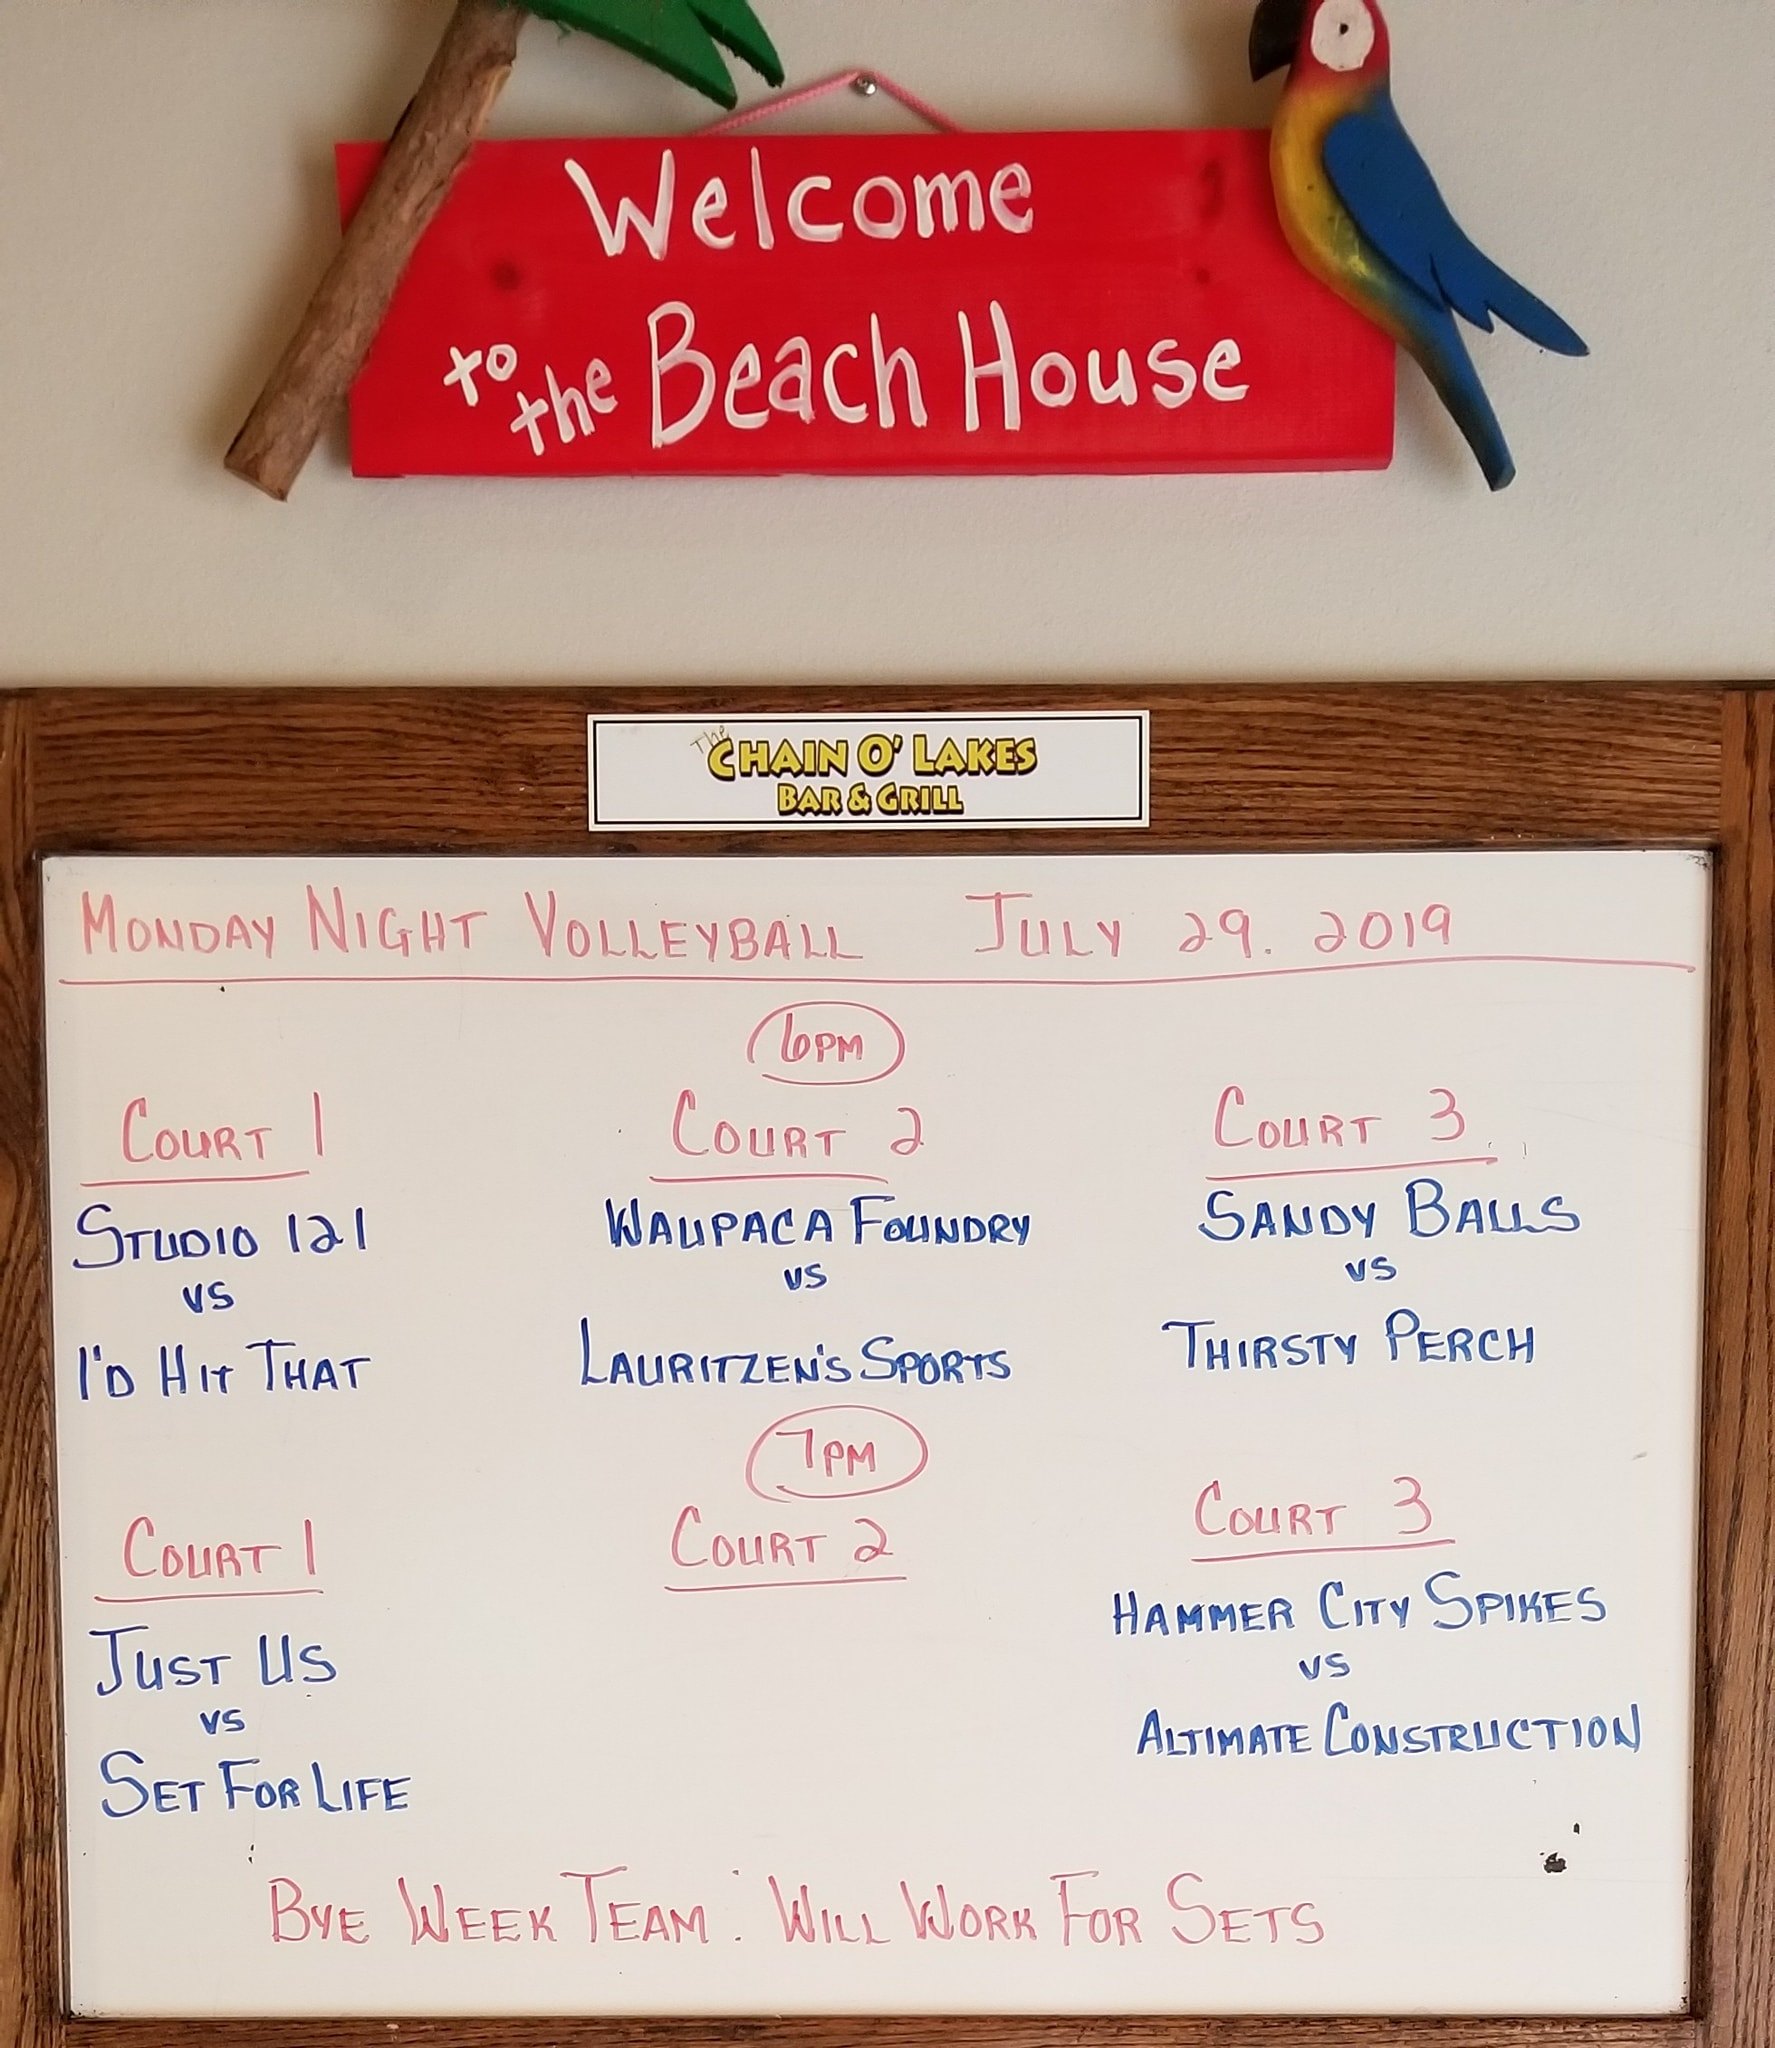 Welcome
to the Beach House
The CHAIN O' LAKES
BAR & GRILL
MONDAY NIGHT VOLLEYBALL JULY 29. 2019
6PM
COURT 1
STUDIO 121
VS
I'D HIT THAT
COURT 2
WAUPACA FOUNDRY
VS
LAURITZEN'S SPORTS
COURT 3
SANDY BALLS
VS
THIRSTY PERCH
7PM
COURT 1
JUST US
VS
SET FOR LIFE
COURT 2
COURT 3
HAMMER CITY SPIKES
VS
ALTIMATE CONSTRUCTION
BYE WEEK TEAM: WILL WORK FOR SETS